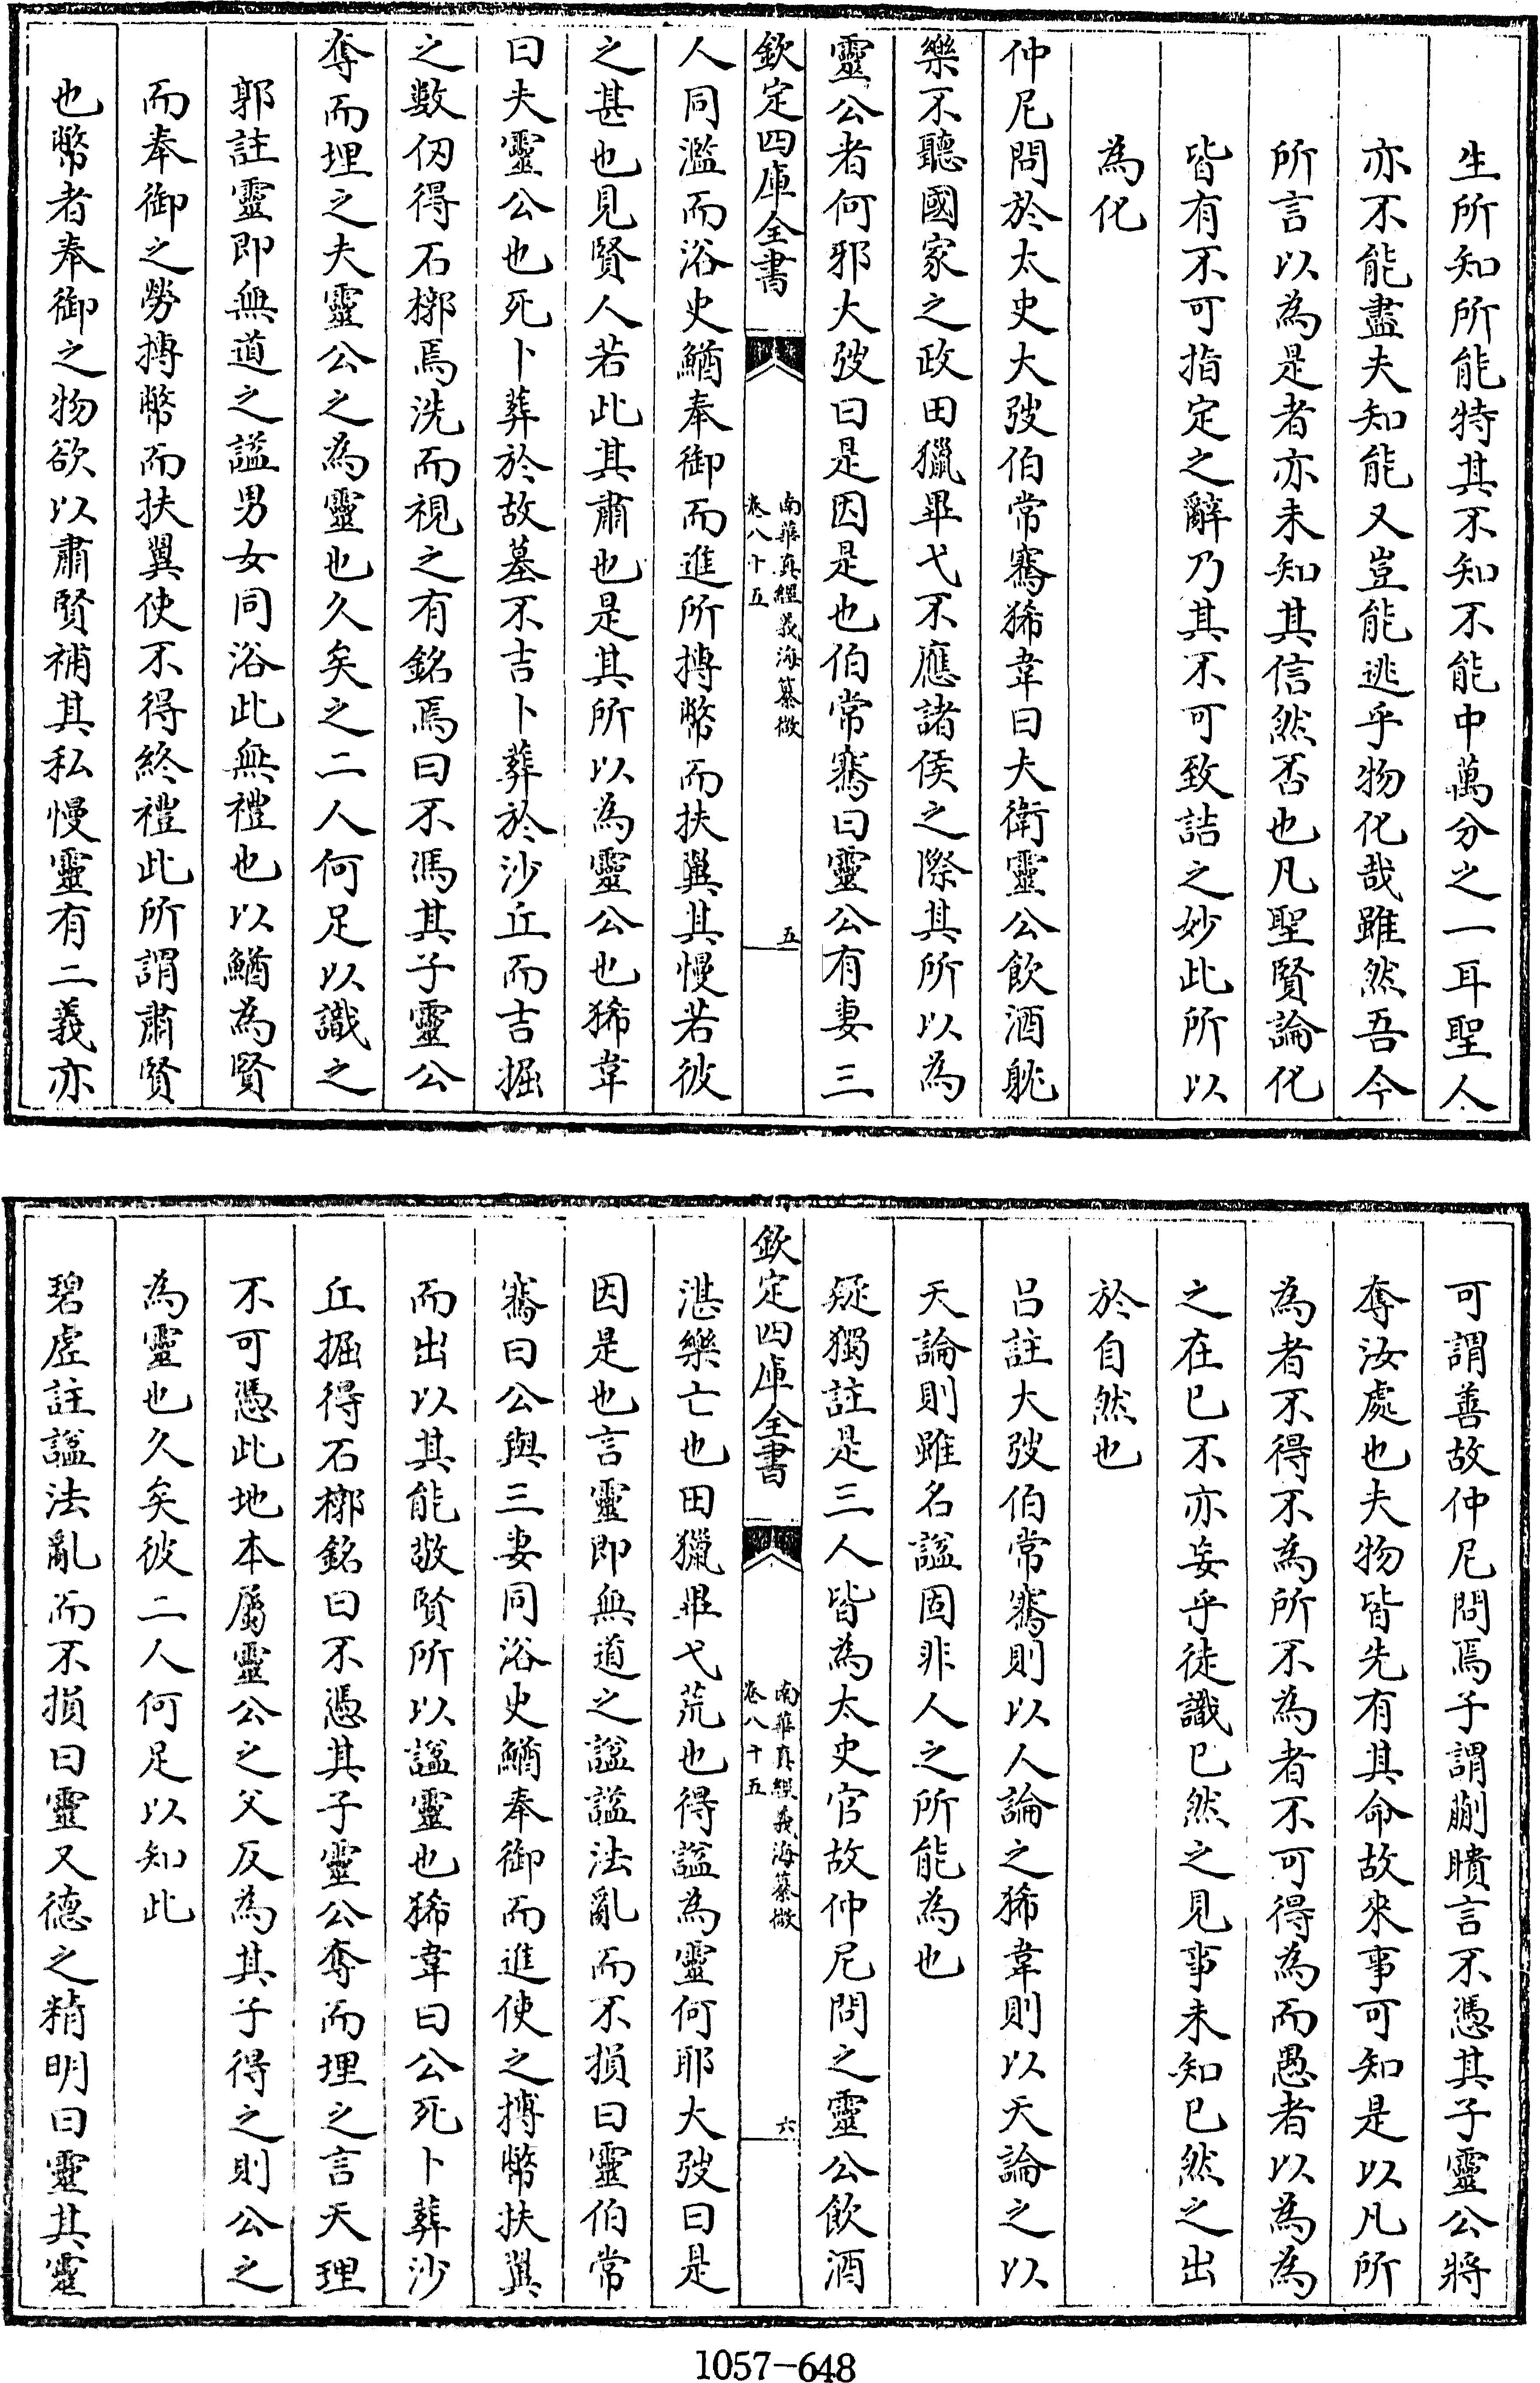 生所知所能特其不知不能中萬分之一耳聖人
亦不能盡夫知能又豈能逃乎物化哉雖然吾今
所言以為是者亦未知其信然否也凡聖賢論化
皆有不可指定之辭乃其不可致詰之妙此所以
為化
仲尼問於太史大弢伯常騫狶韋曰夫衛靈公飲酒躭
樂不聽國家之政田獵畢弋不應諸侯之際其所以為
靈公者何邪大弢曰是因是也伯常騫曰靈公有妻三
欽定四庫全書
南華真經義海纂微
卷八十五
五
人同濫而浴史鰌奉御而進所搏幣而扶翼其慢若彼
之甚也見賢人若此其肅也是其所以為靈公也狶韋
曰夫靈公也死卜葬於故墓不吉卜葬於沙丘而吉掘
之數仞得石槨焉洗而視之有銘焉曰不馮其子靈公
奪而埋之夫靈公之為靈也久矣之二人何足以識之
郭註靈即無道之諡男女同浴此無禮也以鰌為賢
而奉御之勞搏幣而扶翼使不得終禮此所謂肅賢
也幣者奉御之物欲以肅賢補其私慢靈有二義亦
可謂善故仲尼問焉子謂蒯瞶言不憑其子靈公將
奪汝處也夫物皆先有其命故來事可知是以凡所
為者不得不為所不為者不可得為而愚者以為為
之在已不亦妄乎徒識已然之見事未知已然之出
於自然也
呂註大弢伯常騫則以人論之狶韋則以天論之以
天論則雖名諡固非人之所能為也
疑獨註是三人皆為太史官故仲尼問之靈公飲酒
欽定四庫全書
南華真經義海纂微
卷八十五
六
湛樂亡也田獵畢弋荒也得諡為靈何耶大弢曰是
因是也言靈即無道之諡諡法亂而不損曰靈伯常
騫曰公與三妻同浴史鰌奉御而進使之搏幣扶翼
而出以其能敬賢所以諡靈也狶韋曰公死卜葬沙
丘掘得石槨銘曰不憑其子靈公奪而埋之言天理
不可憑此地本屬靈公之父反為其子得之則公之
為靈也久矣彼二人何足以知此
碧虛註諡法亂而不損曰靈又德之精明曰靈其靈
1057-648